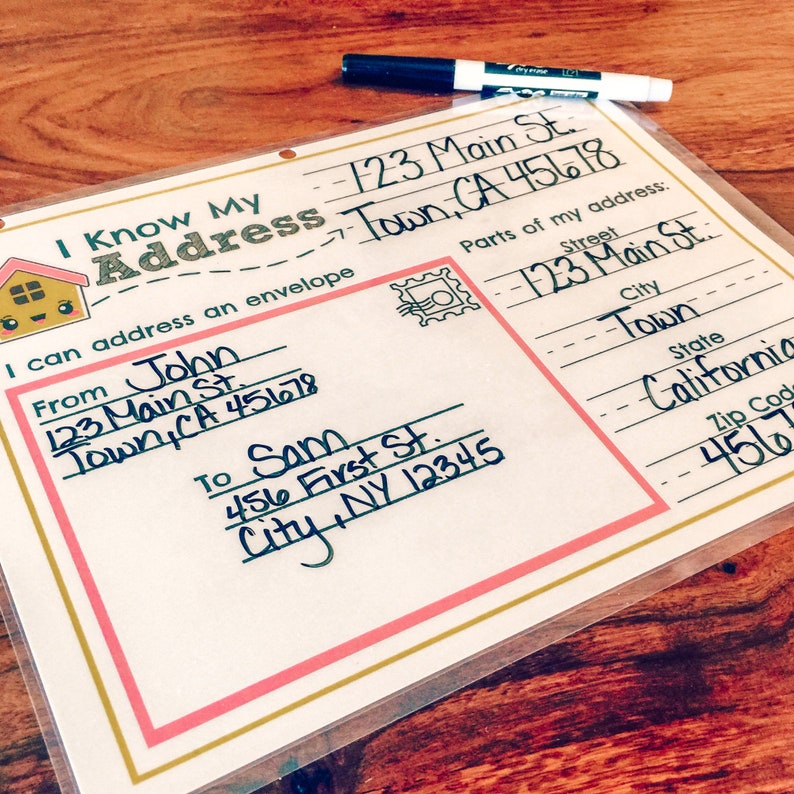 dry erase
EXPO
123 Main St.
Town, CA 45678
I Know My
Address
I can address an envelope
From John
123 Main St.
Town, CA 45678
To Sam
456 First St.
City, NY 12345
Parts of my address:
Street
123 Main St.
City
Town
State
California
Zip Code
4567